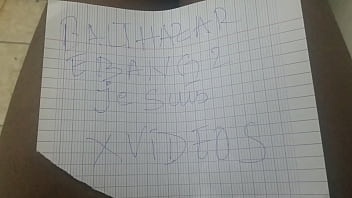 BALTHAZAR
EBANG 2
je suis
XVIDEOS